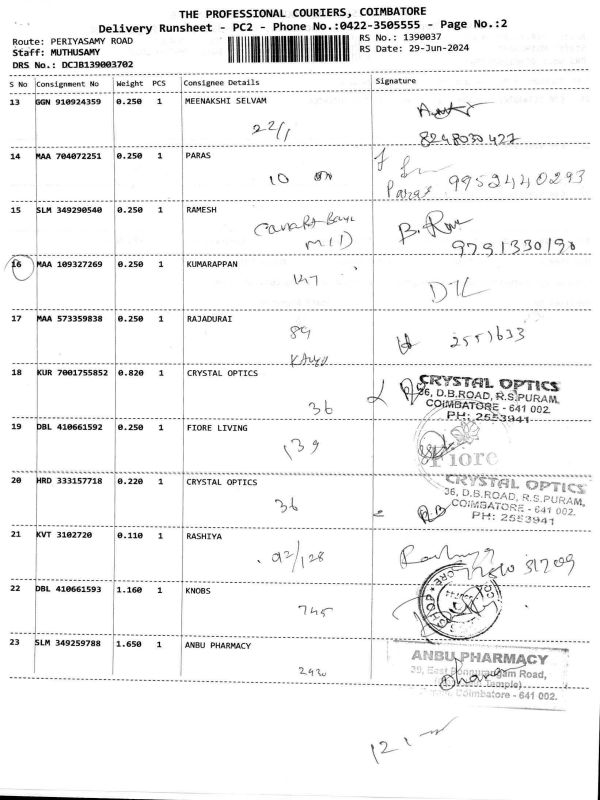 THE PROFESSIONAL COURIERS, COIMBATORE
Delivery Runsheet - PC2 - Phone No.:0422-3505555 - Page No.:2
Route: PERIYASAMY ROAD RS No.: 1390037
Staff: MUTHUSAMY RS Date: 29-Jun-2024
DRS No.: DCJB139003702
S No Consignment No Weight PCS Consignee Details Signature
13 GGN 910924359 0.250 1 MEENAKSHI SELVAM
22/1 8248030427
14 MAA 704072251 0.250 1 PARAS
10 Paras 9952440293
15 SLM 349290540 0.250 1 RAMESH
MID 9791330190
16 MAA 109327269 0.250 1 KUMARAPPAN
147 DTL
17 MAA 573359838 0.250 1 RAJADURAI
89 2551633
18 KUR 7001755852 0.820 1 CRYSTAL OPTICS CRYSTAL OPTICS
36, D.B.ROAD, R.S.PURAM,
36 COIMBATORE - 641 002.
PH: 2553941
19 DBL 410661592 0.250 1 FIORE LIVING
139 Fiore
20 HRD 333157718 0.220 1 CRYSTAL OPTICS CRYSTAL OPTICS
36, D.B.ROAD, R.S.PURAM,
36 COIMBATORE - 641 002.
PH: 2553941
21 KVT 3102720 0.110 1 RASHIYA
92/128
22 DBL 410661593 1.160 1 KNOBS
745
23 SLM 349259788 1.650 1 ANBU PHARMACY ANBU PHARMACY
Road,
Coimbatore - 641 002.